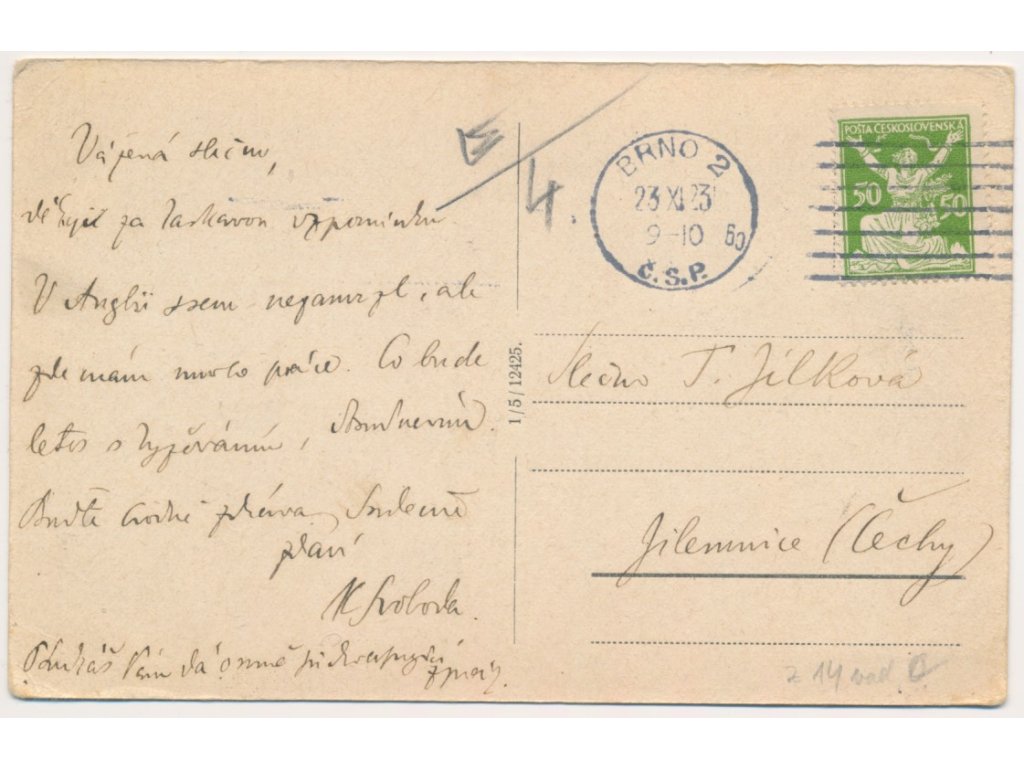 Vážená slečno,
děkuji za laskavou vzpomínku
V Anglii jsem nezamrzl, ale
zde mám mnoho práce. Co bude
letos s lyžováním,
Buďte hodně zdráva. Srdečně
zdraví
K Svoboda.
Vám dá o mně zprávy.
4.
BRNO 2
23 XI 23
9-10 6c
Č.S.P.
POŠTA ČESKOSLOVENSKÁ
50 50
1/5/12425.
Slečno T. Jílková
Jilemnice (Čechy)
z 14 vad